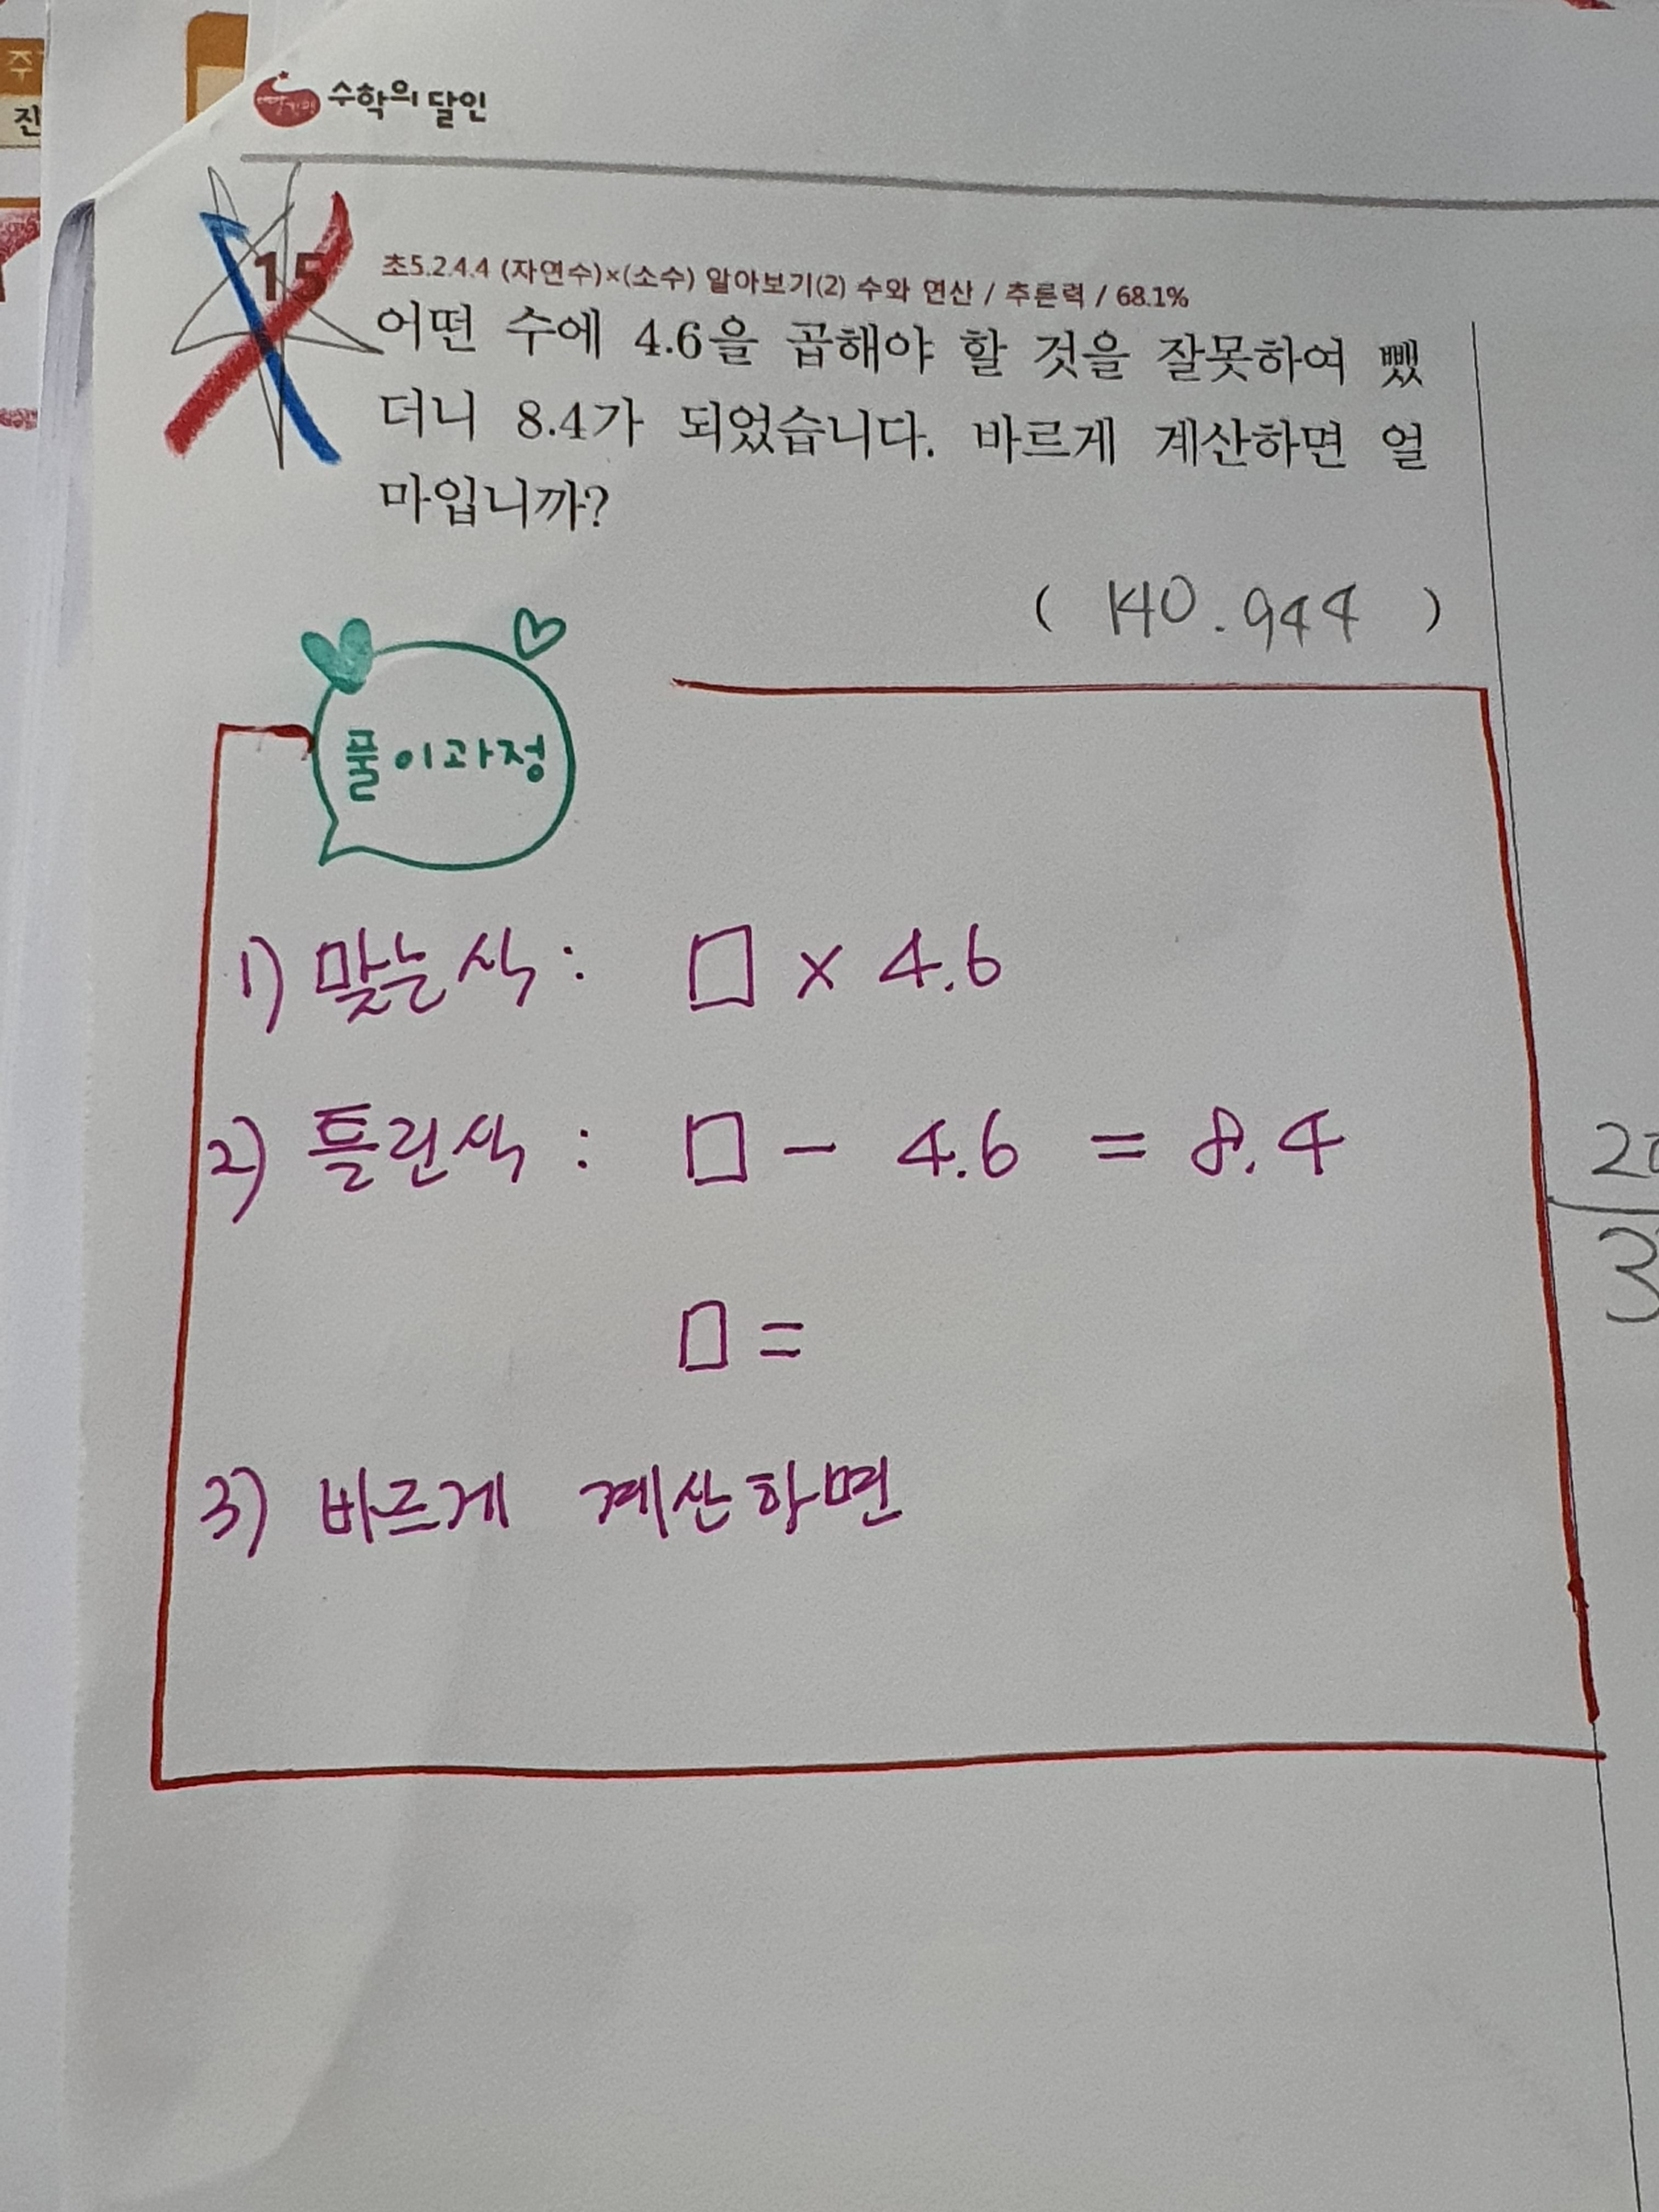 주
진
수학의 달인
15
초5.2.4.4 (자연수)×(소수) 알아보기(2) 수와 연산 / 추론력 / 68.1%
어떤 수에 4.6을 곱해야 할 것을 잘못하여 뺐
더니 8.4가 되었습니다. 바르게 계산하면 얼
마입니까?
( 140.944 )
풀이과정
1) 맞는식 : □ × 4.6
2) 틀린식 : □ - 4.6 = 8.4
□ =
3) 바르게 계산하면